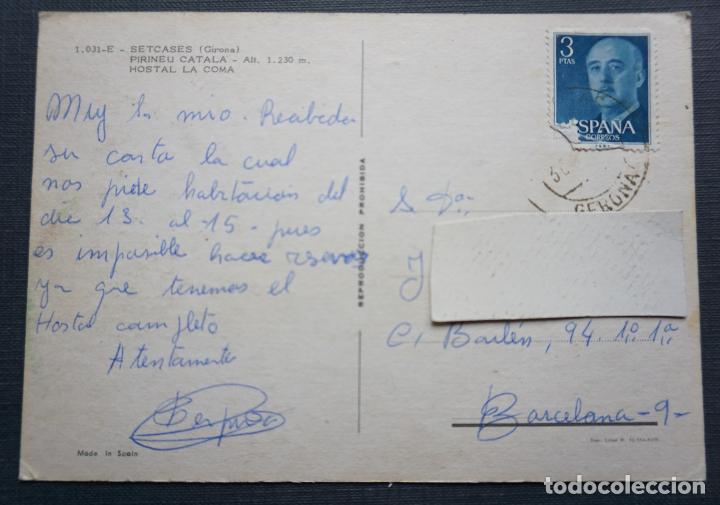 1.031-E - SETCASES (Girona)
PIRINEU CATALA - Alt. 1.230 m.
HOSTAL LA COMA
Muy Sr mio. Recibida
su carta la cual
nos pide habitación del
dia 13. al -15- pues
es imposible hacer reservas
ya que tenemos el
Hostal completo
Atentamente
Made in Spain
REPRODUCCION PROHIBIDA
3
PTAS
ESPAÑA
CORREOS
GERONA
S. Dª
J
C. Bailén, 94 1º 1ª
Barcelona -9-
todocoleccion.net